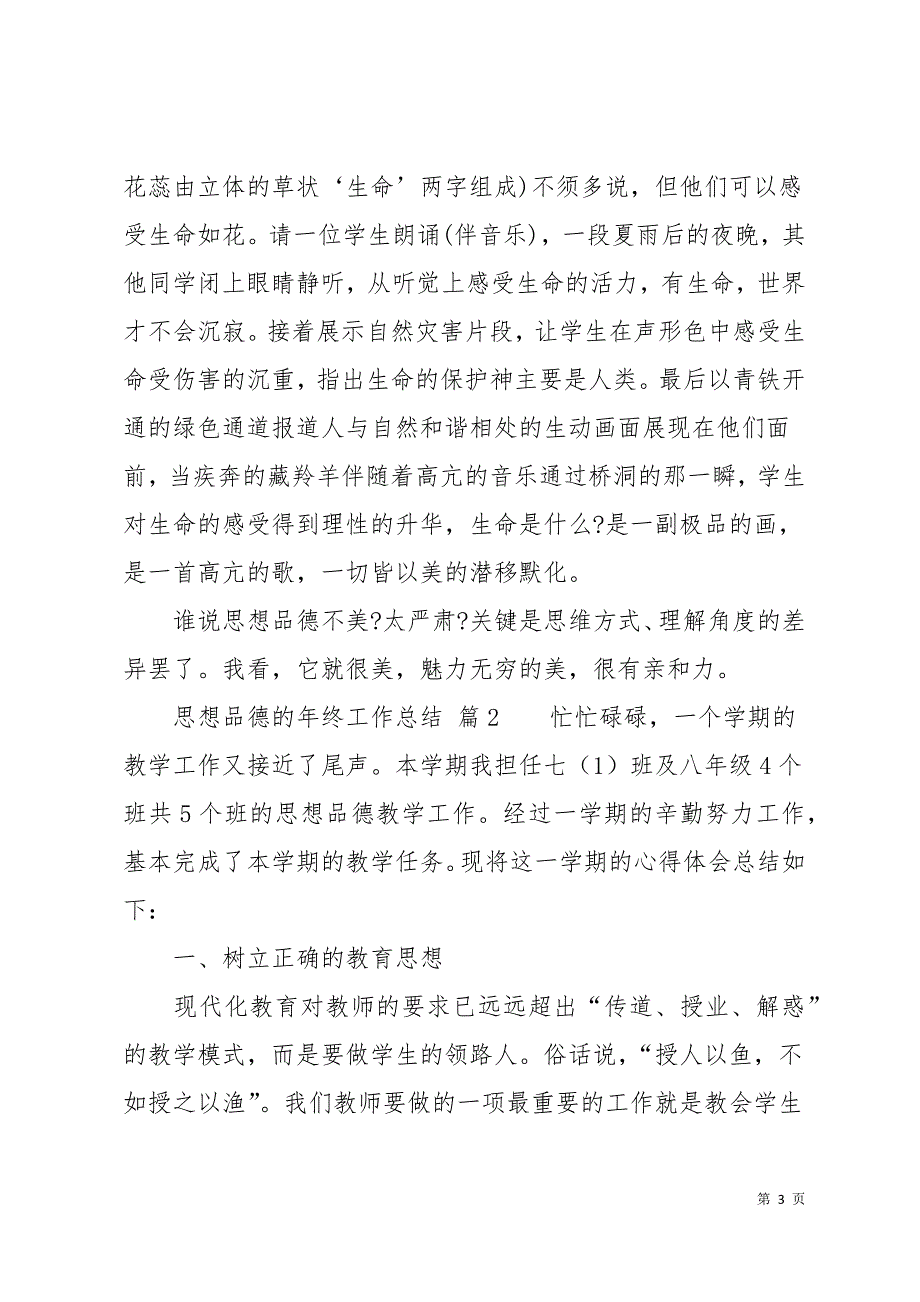 花蕊由立体的草状‘生命’两字组成)不须多说，但他们可以感
受生命如花。请一位学生朗诵(伴音乐)，一段夏雨后的夜晚，其
他同学闭上眼睛静听，从听觉上感受生命的活力，有生命，世界
才不会沉寂。接着展示自然灾害片段，让学生在声形色中感受生
命受伤害的沉重，指出生命的保护神主要是人类。最后以青铁开
通的绿色通道报道人与自然和谐相处的生动画面展现在他们面
前，当疾奔的藏羚羊伴随着高亢的音乐通过桥洞的那一瞬，学生
对生命的感受得到理性的升华，生命是什么?是一副极品的画，
是一首高亢的歌，一切皆以美的潜移默化。
谁说思想品德不美?太严肃?关键是思维方式、理解角度的差
异罢了。我看，它就很美，魅力无穷的美，很有亲和力。
思想品德的年终工作总结 篇2 忙忙碌碌，一个学期的
教学工作又接近了尾声。本学期我担任七（1）班及八年级4个
班共5个班的思想品德教学工作。经过一学期的辛勤努力工作，
基本完成了本学期的教学任务。现将这一学期的心得体会总结如
下：
一、树立正确的教育思想
现代化教育对教师的要求已远远超出“传道、授业、解惑”
的教学模式，而是要做学生的领路人。俗话说，“授人以鱼，不
如授之以渔”。我们教师要做的一项最重要的工作就是教会学生
第 3 页